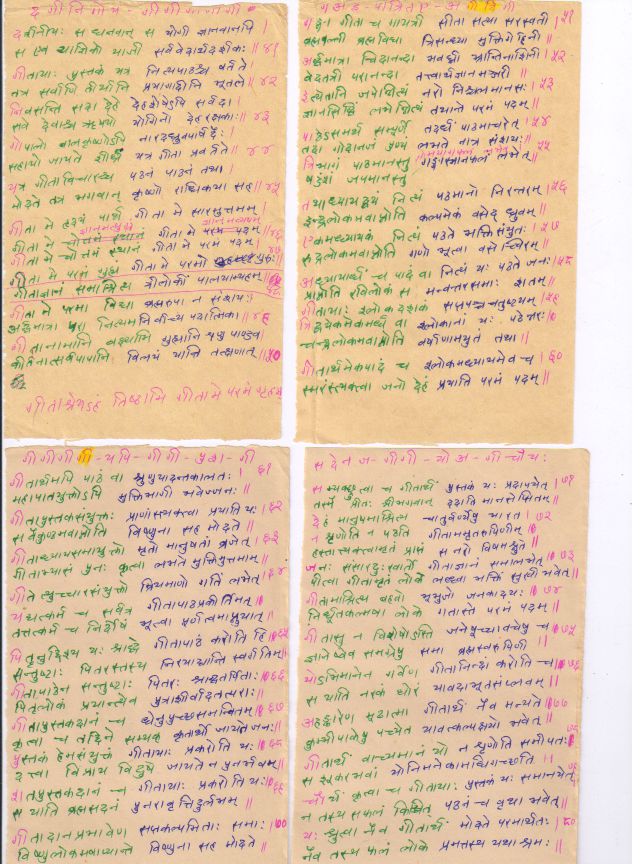 दर्शनीयः स धनवान् स योगी ज्ञानवानपि
स एव याज्ञिको याजी सर्ववेदार्थदर्शकः॥ ४१
गीतायाः पुस्तकं यत्र नित्यपाठश्च वर्तते
तत्र सर्वाणि तीर्थानि प्रयागादीनि भूतले॥ ४२
निवसन्ति सदा देहे देहशेषेऽपि सर्वदा।
सर्वे देवाश्च ऋषयो योगिनो देहरक्षकाः॥ ४३
गोपालो बालकृष्णोऽपि नारदध्रुवपार्षदैः।
सहायो जायते शीघ्रं यत्र गीता प्रवर्तते॥ ४४
यत्र गीताविचारश्च पठनं पाठनं तथा।
मोदते तत्र भगवान् कृष्णो राधिकया सह॥ ४५
गीता मे हृदयं पार्थ गीता मे सारमुत्तमम्
गीता मे ज्ञानमत्युग्रं गीता मे ज्ञानमव्ययम्
गीता मे चोत्तमं स्थानं गीता मे परमं पदम्।
गीता मे परमं गुह्यं गीता मे परमो गुरुः॥
गीताज्ञानं समाश्रित्य त्रिलोकीं पालयाम्यहम्॥
गीता मे परमा विद्या ब्रह्मरूपा न संशयः।
अर्द्धमात्रा परा नित्यमनिर्वाच्य पदात्मिका॥ ४९
गीतानामानि वक्ष्यामि गुह्यानि शृणु पाण्डव
कीर्तनात्सर्वपापानि विलयं यान्ति तत्क्षणात्॥ ५०
गीताश्रयेऽहं तिष्ठामि गीता मे परमं गृहम्
गङ्गा गीता च गायत्री सीता सत्या सरस्वती ५१
ब्रह्मवल्ली ब्रह्मविद्या त्रिसन्ध्या मुक्तिगेहिनी॥
अर्द्धमात्रा चिदानन्दा भवघ्नी भ्रान्तिनाशिनी ५२
वेदत्रयी परानन्दा तत्त्वार्थज्ञानमञ्जरी॥
इत्येतानि जपेन्नित्यं नरो निश्चलमानसः ५३
ज्ञानसिद्धिं लभेन्नित्यं तथान्ते परमं पदम्॥
पाठेऽसमर्थः सम्पूर्णे तदर्धं पाठमाचरेत् ५४
तदा गोदानजं पुण्यं लभते नात्र संशयः॥
त्रिभागं पाठमानस्तु ५५
षडंशं जपमानस्तु गङ्गास्नानफलं लभेत्॥
तथाध्यायद्वयं नित्यं पठमानो निरन्तरम् ५६
इन्द्रलोकमवाप्नोति कल्पमेकं वसेद् ध्रुवम्॥
एकमध्यायकं नित्यं पठते भक्तिसंयुतः ५७
रुद्रलोकमवाप्नोति गणो भूत्वा वसेच्चिरम्॥
अध्यायार्धं च पादं वा नित्यं यः पठते जनः ५८
प्राप्नोति रविलोकं स मन्वन्तरसमाः शतम्॥
गीतायाः श्लोकदशकं सप्तपञ्चचतुष्टयम् ५९
त्रिद्व्येकमेकमर्धं वा श्लोकानां यः पठेन्नरः
चन्द्रलोकमवाप्नोति वर्षाणामयुतं तथा॥
गीतार्थमेकपादं च श्लोकमध्यायमेव च ६०
स्मरंस्त्यक्त्वा जनो देहं प्रयाति परमं पदम्॥
गीतार्थमपि पाठं वा शृणुयादन्तकालतः। ६१
महापातकयुक्तोऽपि मुक्तिभागी भवेज्जनः॥
गीतापुस्तकसंयुक्तः प्राणांस्त्यक्त्वा प्रयाति यः ६२
स वैकुण्ठमवाप्नोति विष्णुना सह मोदते॥
गीताध्यायसमायुक्तो मृतो मानुषतां व्रजेत् ६३
गीताभ्यासं पुनः कृत्वा लभते मुक्तिमुत्तमाम्॥
गीतेत्युच्चारसंयुक्तो म्रियमाणो गतिं लभेत् ६४
यद्यत्कर्म च सर्वत्र गीतापाठप्रकीर्तिमत्
तत्तत्कर्म च निर्दोषं भूत्वा पूर्णत्वमाप्नुयात्॥
पितॄनुद्दिश्य यः श्राद्धे गीतापाठं करोति हि ६५
सन्तुष्टाः पितरस्तस्य निरयाद्यान्ति स्वर्गतिम्॥
गीतापाठेन सन्तुष्टाः पितरः श्राद्धतर्पिताः ६६
पितृलोकं प्रयान्त्येव पुत्राशीर्वादतत्पराः॥
गीतापुस्तकदानं च धेनुपुच्छसमन्वितम् ६७
कृत्वा च तद्दिने सम्यक् कृतार्थो जायते जनः॥
पुस्तकं हेमसंयुक्तं गीतायाः प्रकरोति यः ६८
दत्त्वा विप्राय विदुषे जायते न पुनर्भवम्॥
शतपुस्तकदानं च गीतायाः प्रकरोति यः ६९
स याति ब्रह्मसदनं पुनरावृत्तिदुर्लभम्॥
गीतादानप्रभावेण सप्तकल्पमिताः समाः ७०
विष्णुलोकमवाप्यान्ते विष्णुना सह मोदते॥
सम्यक्छ्रुत्वा च गीतार्थं पुस्तकं यः प्रदापयेत् ७१
तस्मै प्रीतः श्रीभगवान् ददाति मानसेप्सितम्॥
देहं मानुषमाश्रित्य चातुर्वर्ण्येषु भारत ७२
न शृणोति न पठति गीताममृतरूपिणीम्
हस्तात्त्यक्त्वामृतं प्राप्तं स नरो विषमश्नुते॥
जनः संसारदुःखार्तो गीताज्ञानं समालभेत् ७३
पीत्वा गीतामृतं लोके लब्ध्वा भक्तिं सुखी भवेत्॥
गीतामाश्रित्य बहवो भूभुजो जनकादयः ७४
निर्धूतकल्मषा लोके गतास्ते परमं पदम्॥
गीतासु न विशेषोऽस्ति जनेषूच्चावचेषु च ७५
ज्ञानेष्वेव समग्रेषु समा ब्रह्मस्वरूपिणी॥
योऽभिमानेन गर्वेण गीतानिन्दां करोति च ७६
स याति नरकं घोरं यावदाभूतसंप्लवम्॥
अहङ्कारेण मूढात्मा गीतार्थं नैव मन्यते ७७
कुम्भीपाकेषु पच्येत यावत्कल्पक्षयो भवेत्॥
गीतार्थं वाच्यमानं यो न शृणोति समीपतः ७८
स शूकरभवां योनिमनेकामधिगच्छति
चौर्यं कृत्वा च गीतायाः पुस्तकं यः समानयेत्
न तस्य सफलं किञ्चित् पठनं च वृथा भवेत्॥
यः श्रुत्वा नैव गीतार्थं मोदते परमार्थतः ८०
नैव तस्य फलं लोके प्रमत्तस्य यथा श्रमः॥